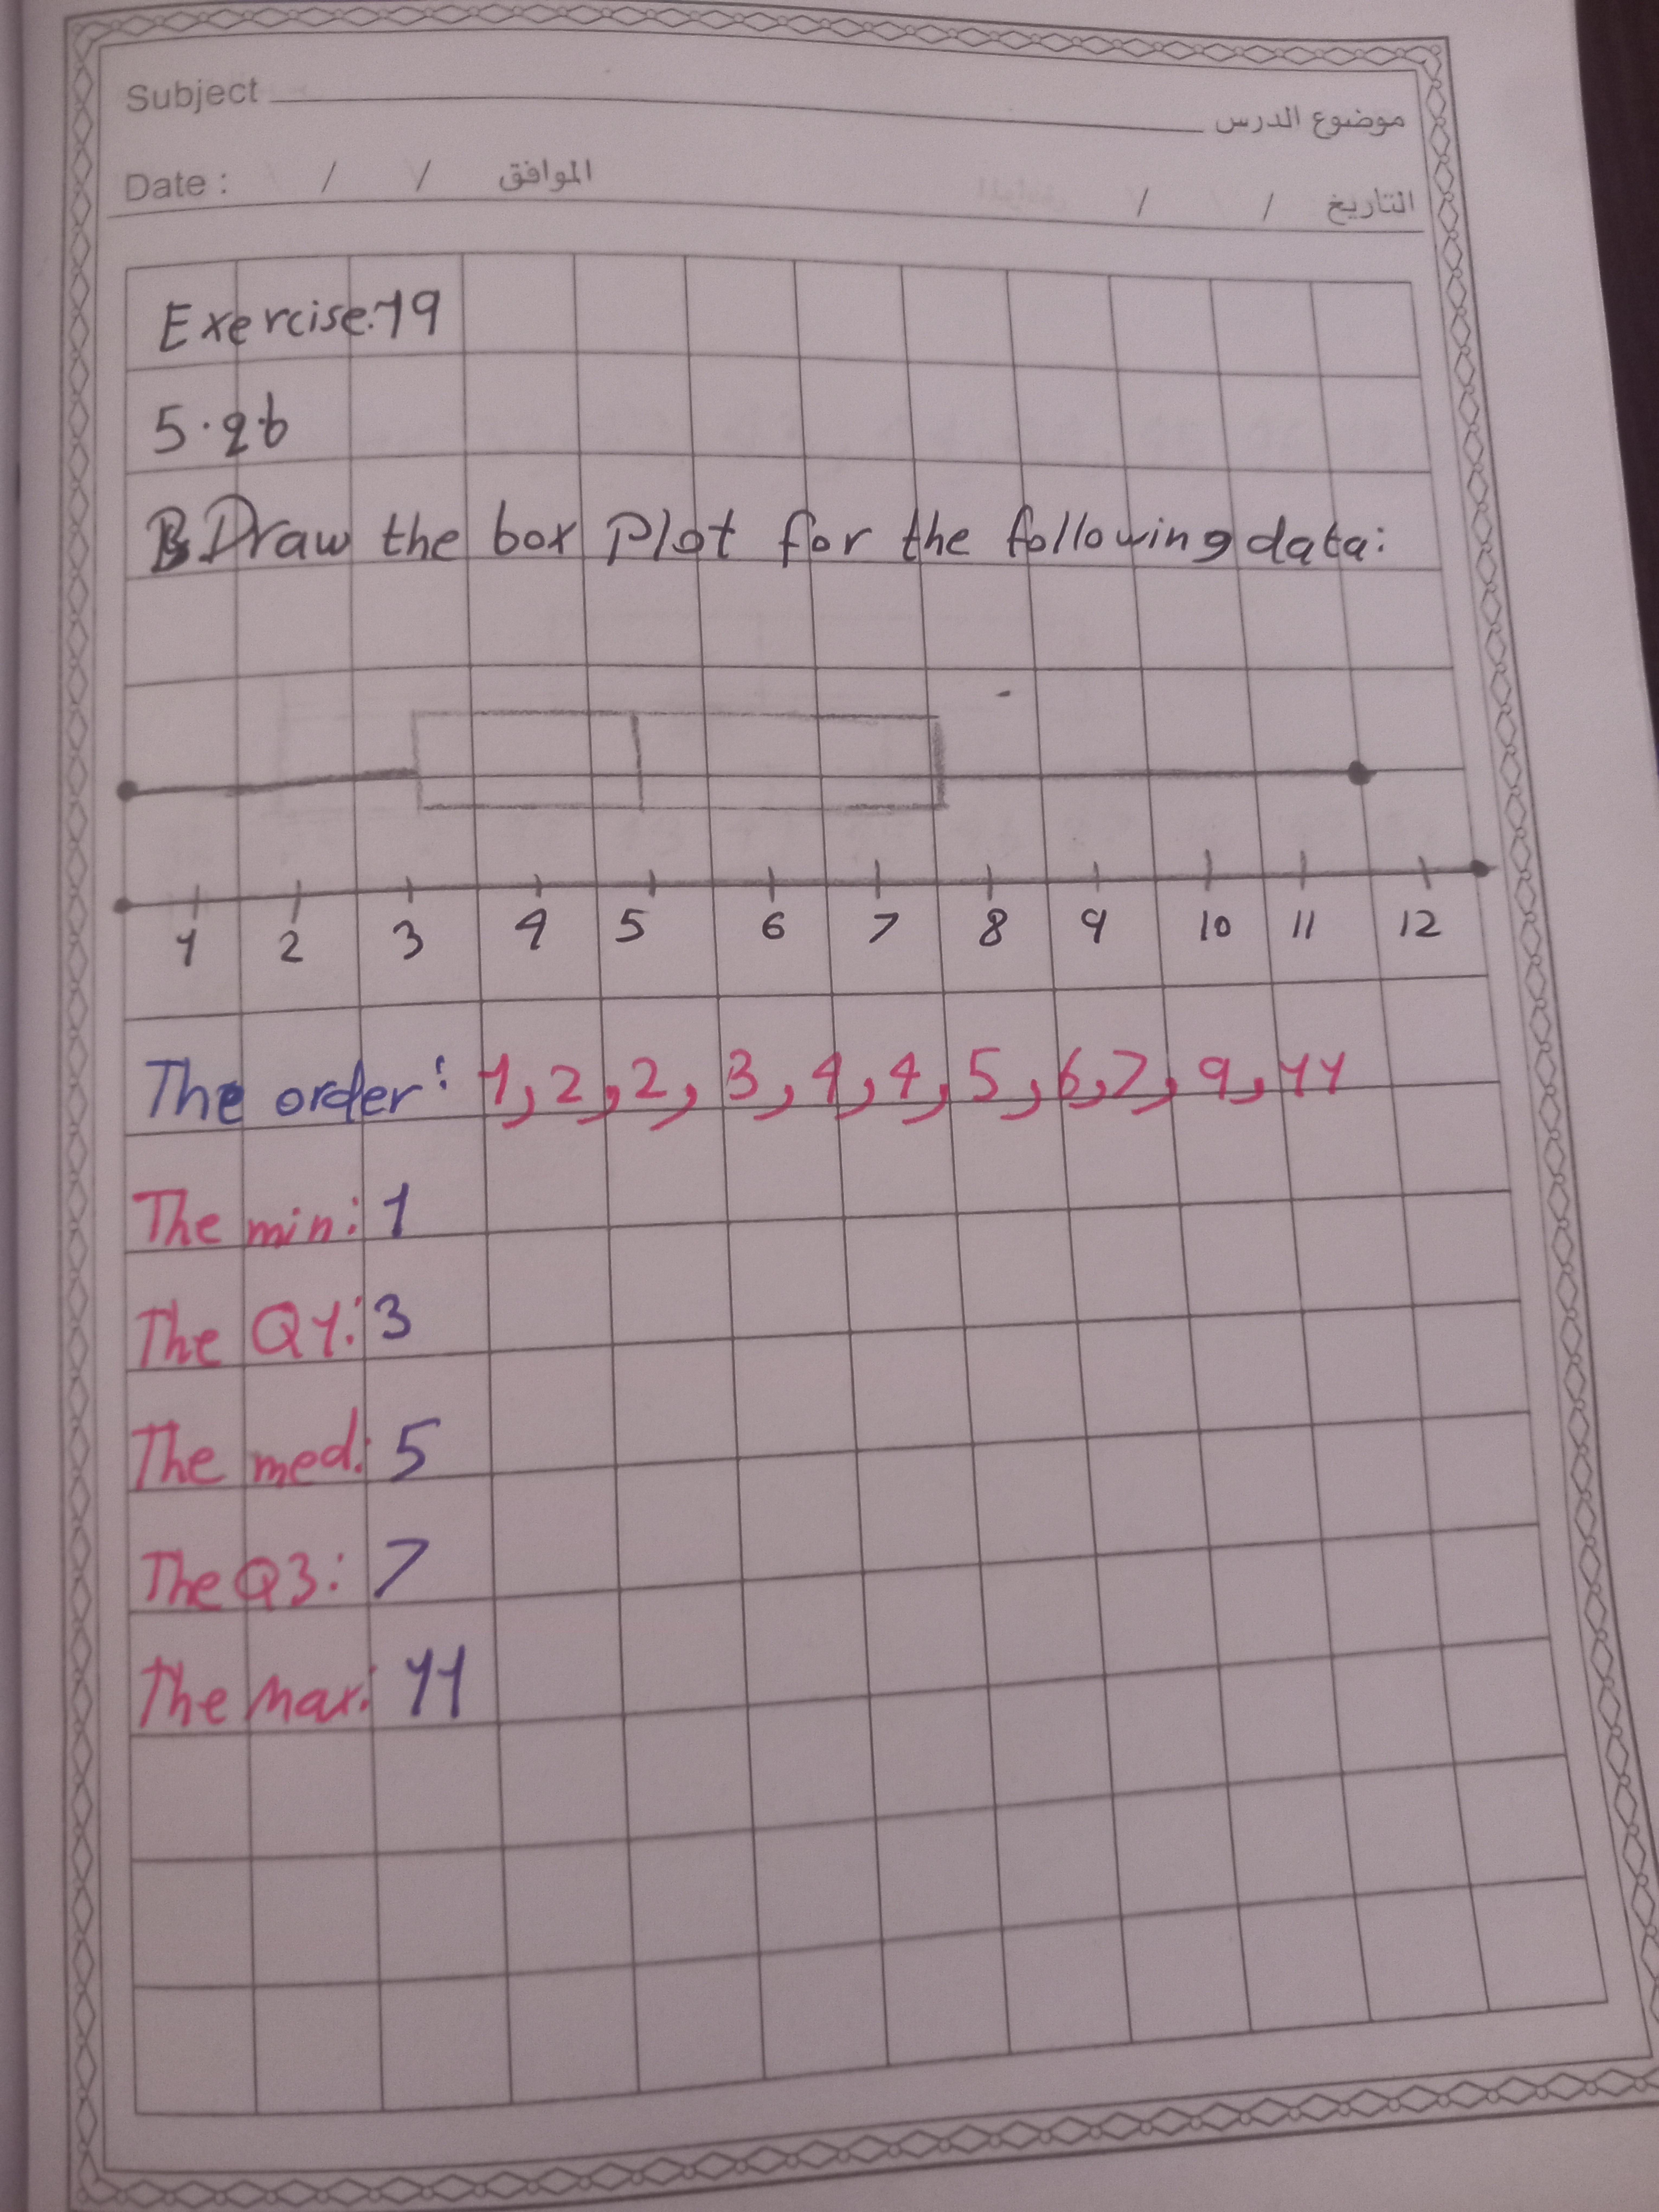 Subject موضوع الدرس
Date : / / الموافق / / التاريخ
Exercise:19
5.26
B Draw the box Plot for the following data:
1 2 3 4 5 6 7 8 9 10 11 12
The order: 1, 2, 2, 3, 4, 4, 5, 6, 7, 9, 11
The min: 1
The Q1: 3
The med: 5
The Q3: 7
The max: 11